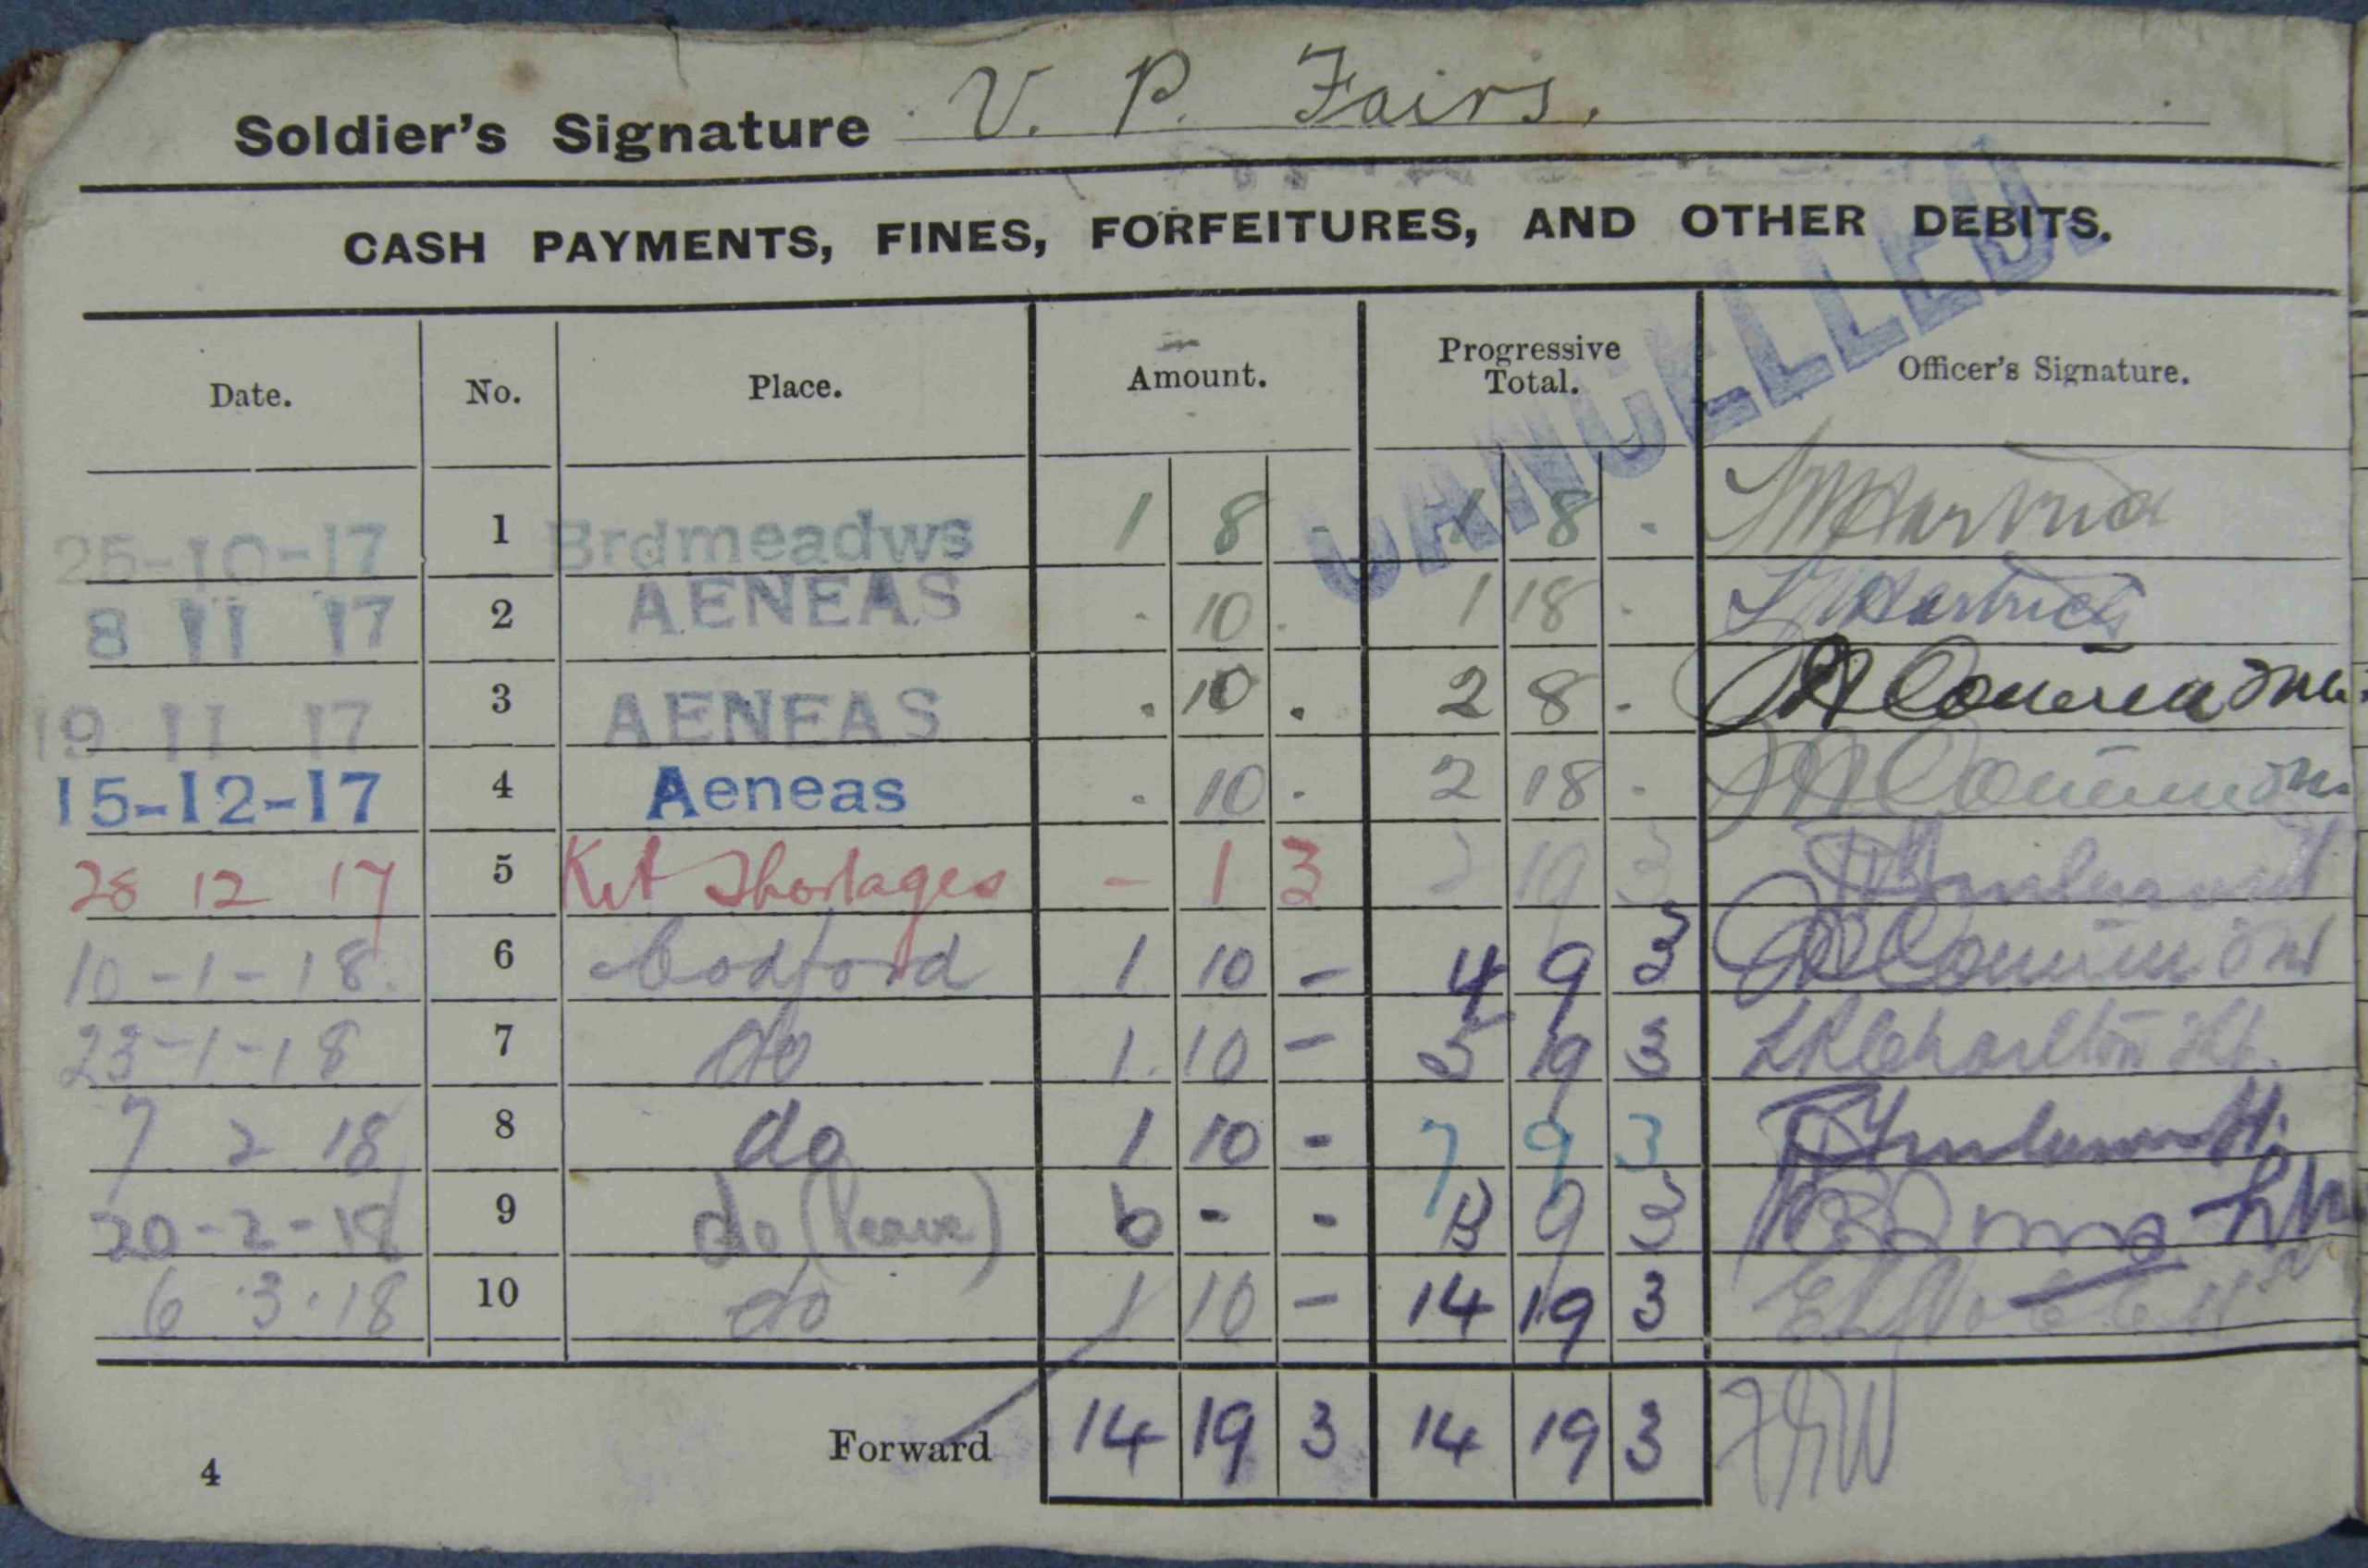 Soldier's Signature V. P. Fairs.
CASH PAYMENTS, FINES, FORFEITURES, AND OTHER DEBITS.
CANCELLED.
Date. No. Place. Amount. Progressive Total. Officer's Signature.
25-10-17 1 Brdmeadws 1 8 - 1 8 -
8 11 17 2 AENEAS . 10 . 1 18 .
19 11 17 3 AENEAS . 10 . 2 8 .
15-12-17 4 Aeneas . 10 . 2 18 .
28 12 17 5 Kit Shortages - 1 3 2 19 3
10-1-18. 6 Codford 1 10 - 4 9 3
23-1-18 7 do 1. 10 - 5 19 3 Charlton
7 2 18 8 do 1 10 - 7 9 3
20-2-18 9 do (leave) 6 - - 13 9 3
6.3.18 10 do 1 10 - 14 19 3
Forward 14 19 3 14 19 3
4